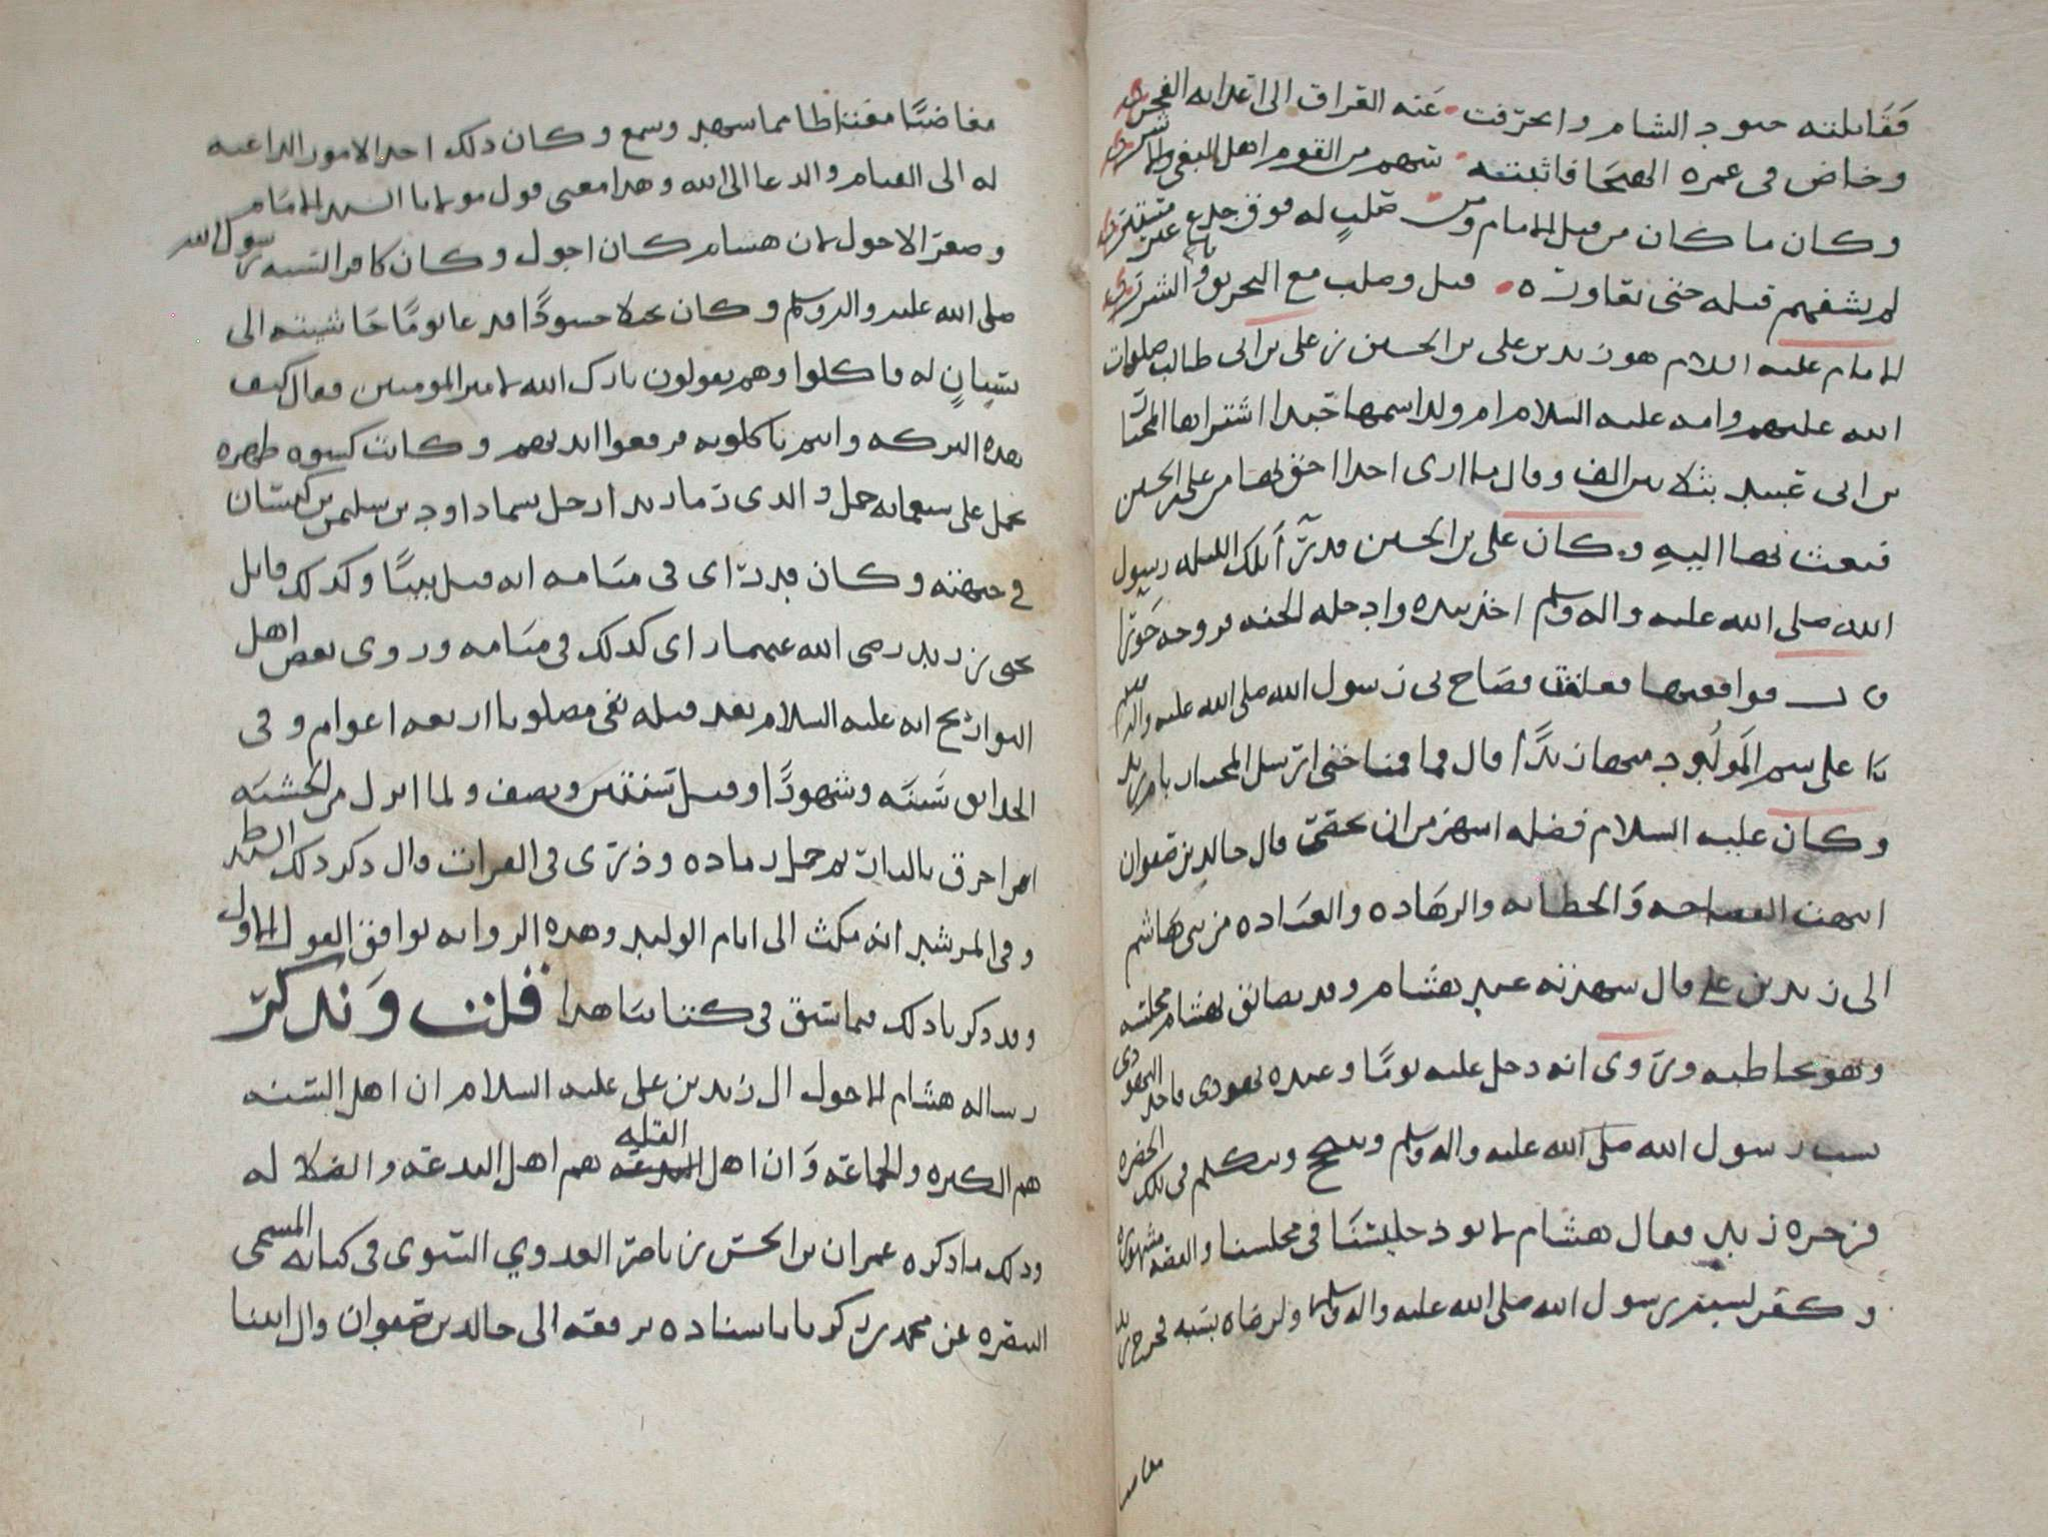 فقابلته جنود الشام وانحرفت عنه العراق الى اعدائه الفجره
وخاض في غمره الهيجا فاثبته سهم من القوم اهل البغي والاشره
وكان ما كان من قتل الامام ومن صلب له فوق جذع يابس نخره
لم يشفهم قتله حتى تعاوره قتل وصلب مع التحريق والشرره
الامام عليه السلام هو زيد بن علي بن الحسين بن علي بن ابي طالب صلوات
الله عليهم وامه عليه السلام ام ولد اسمها جيدا اشتراها المختار
بن ابي عبيد بثلاثين الف وقال ما ارى احدا احق بها من علي بن الحسين
فبعث بها اليه وكان علي بن الحسين قد راى تلك الليله رسول
الله صلى الله عليه واله وسلم اخذ بيده وادخله الجنه فزوجه حورا
قال فواقعتها فعلقت فصاح بي رسول الله صلى الله عليه واله وسلم
يا علي سم المولود منها زيدا قال فما قمنا حتى ارسل المختار بام زيد
وكان عليه السلام فضله اشهر من ان يحصى قال خالد بن صفوان
انتهت الفصاحه والخطابه والزهاده والعباده من بني هاشم
الى زيد بن علي قال شهدته عند هشام وقد تضايق بهشام مجلسه
وهو يخاطبه وروى انه دخل عليه يوما وعنده يهودي فاخذ اليهودي
يسب رسول الله صلى الله عليه واله وسلم ويتكلم في تلك الحضره
فزجره زيد فقال هشام لا توذ جليسنا في مجلسنا والقصه مشهوره
وكفر بسب رسول الله صلى الله عليه واله وسلم ولرضاه بسبه فخرج زيد
مغاضبا
مغاضبا مغتاظا مما شهد وسمع وكان ذلك احد الامور الداعيه
له الى القيام والدعا الى الله وهذا معنى قول مولانا السيد الامام
وصعر الاحول لان هشام كان احول وكان كافر السبه رسول الله
صلى الله عليه واله وسلم وكان بخيلا حسودا قد دعا يوما حاشيته الى
بستان له فاكلوا وهم يقولون بارك الله لامير المومنين فقال كيف
بهذه البركه وانتم تاكلونه فرفعوا ايديهم وكانت كسوه ظهره
تحمل على سبعمائه جمل والذي رماه زيدا رجل يسما داود بن سليمن بن كيسان
في جبهته وكان قد راى في منامه انه قتل نبيا وكذلك قاتل
يحيى بن زيد رضي الله عنهما راى كذلك في منامه وروى بعض اهل
التواريخ انه عليه السلام بعد قتله بقي مصلوبا اربعه اعوام وفي
الحدائق سنه وشهورا وقيل سنتين ونصف ولما انزل من الخشبه
احرق بالنار ثم جعل رماده وذرى في الفرات قال ذكر ذلك السيد
وفي المرشد انه مكث الى ايام الوليد وهذه الروايه توافق القول الاول
وقد ذكرنا ذلك فيما سبق في كتابنا هذا قلت ونذكر
رساله هشام الاحول الى زيد بن علي عليه السلام ان اهل السنه
هم الكثره والجماعه وان اهل القله هم اهل البدعه والضلاله
وذلك ما ذكره عمران بن الحسن بن ناصر العدوي النسوي في كتابه المسمى
التبصره عن محمد بن زكريا باسناده يرفعه الى خالد بن صفوان قال اتينا